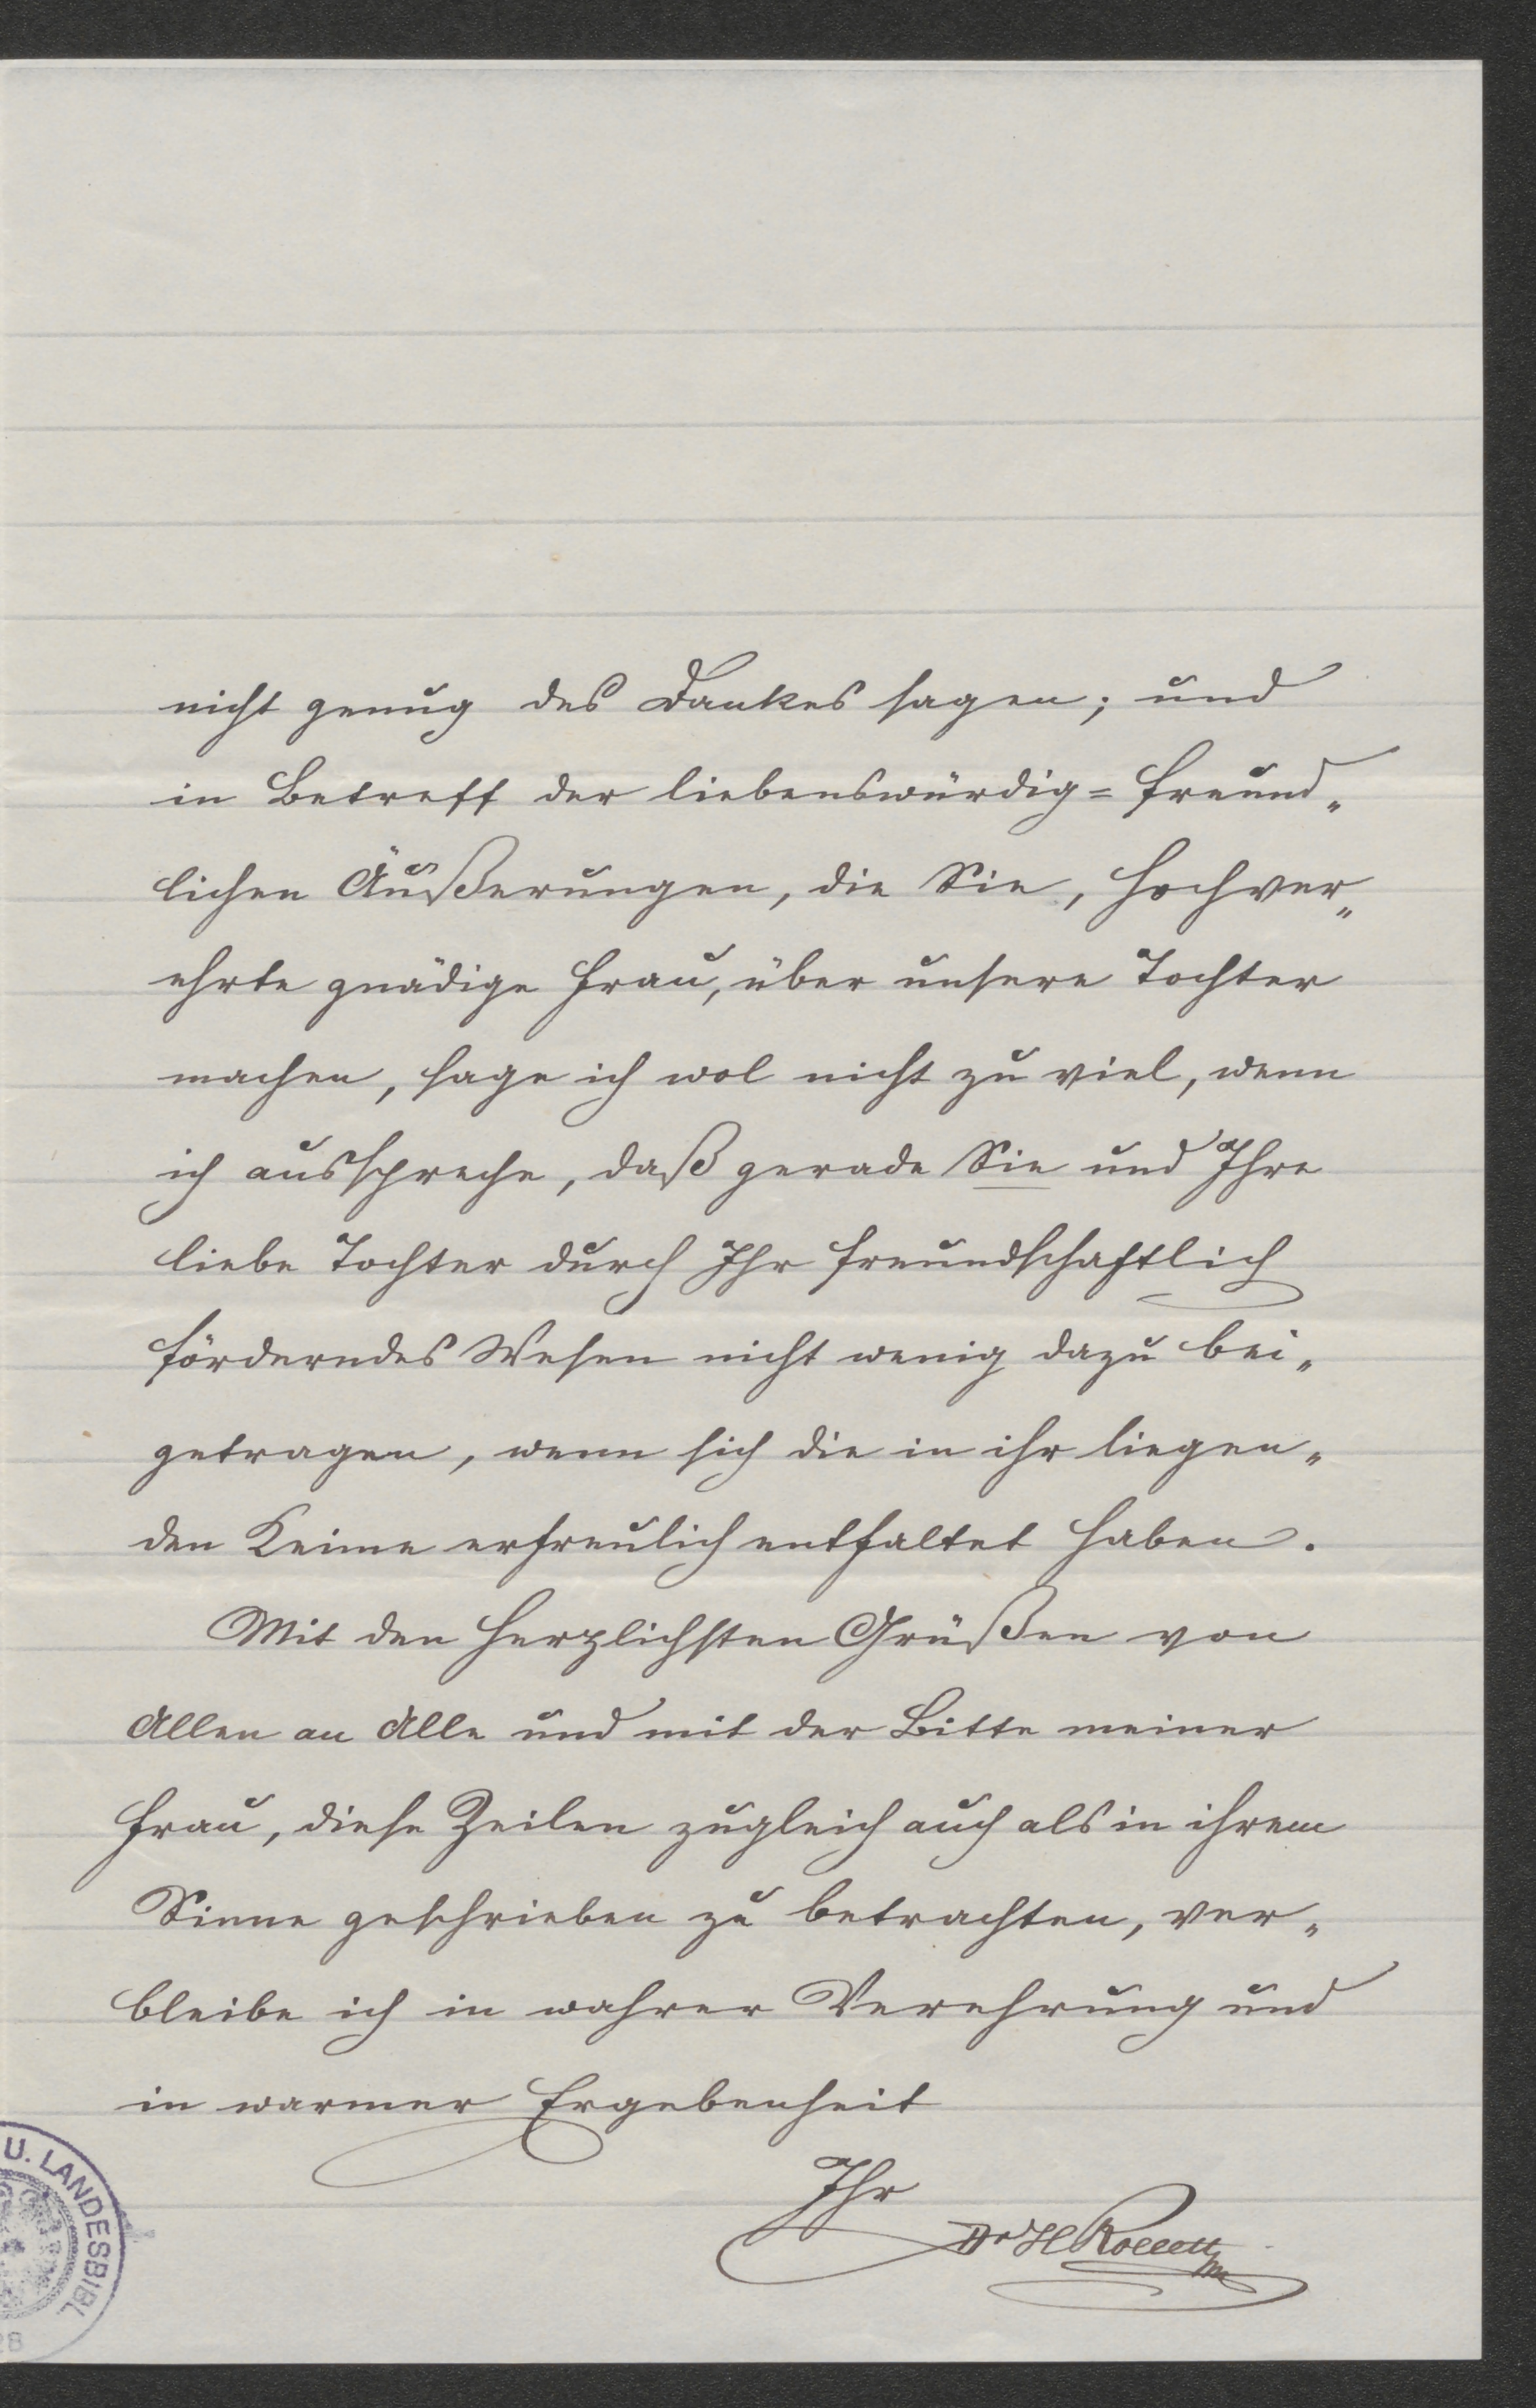 nicht genug des Dankes sagen; und
in Betreff der liebenswürdig=freund„
lichen Äußerungen, die Sie, hochver„
ehrte gnädige Frau, über unsere Tochter
machen, sage ich wol nicht zu viel, wenn
ich ausspreche, daß gerade Sie und Ihre
liebe Tochter durch Ihr freundschaftlich
förderndes Wesen nicht wenig dazu bei„
getragen, wenn sich die in ihr liegen„
den Keime erfreulich entfaltet haben.
Mit den herzlichsten Grüßen von
Allen an Alle und mit der Bitte meiner
Frau, diese Zeilen zugleich auch als in ihrem
Sinne geschrieben zu betrachten, ver„
bleibe ich in wahrer Verehrung und
in warmer Ergebenheit
Ihr
Dr H Rollett
U. LANDESBIBL
28